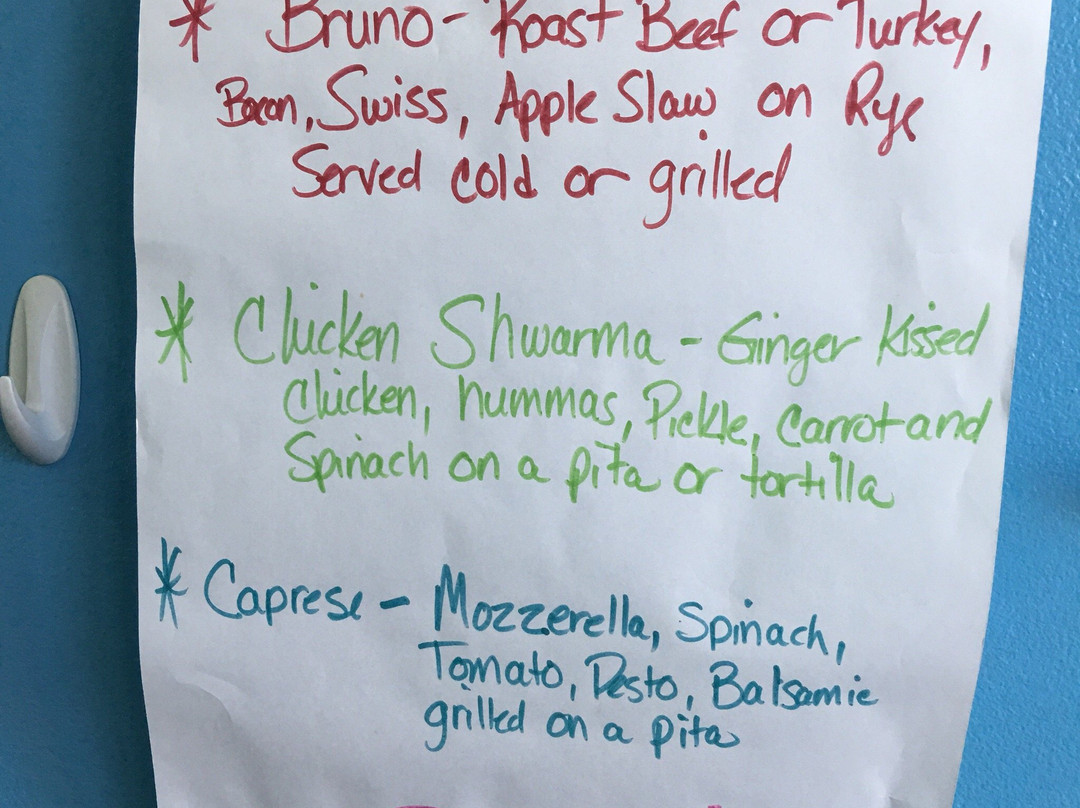 * Bruno - Roast Beef or Turkey,
Bacon, Swiss, Apple Slaw on Rye
Served cold or grilled
* Chicken Shwarma - Ginger Kissed
Chicken, hummas, Pickle, Carrot and
Spinach on a pita or tortilla
* Caprese - Mozzerella, Spinach,
Tomato, Pesto, Balsamic
grilled on a pita